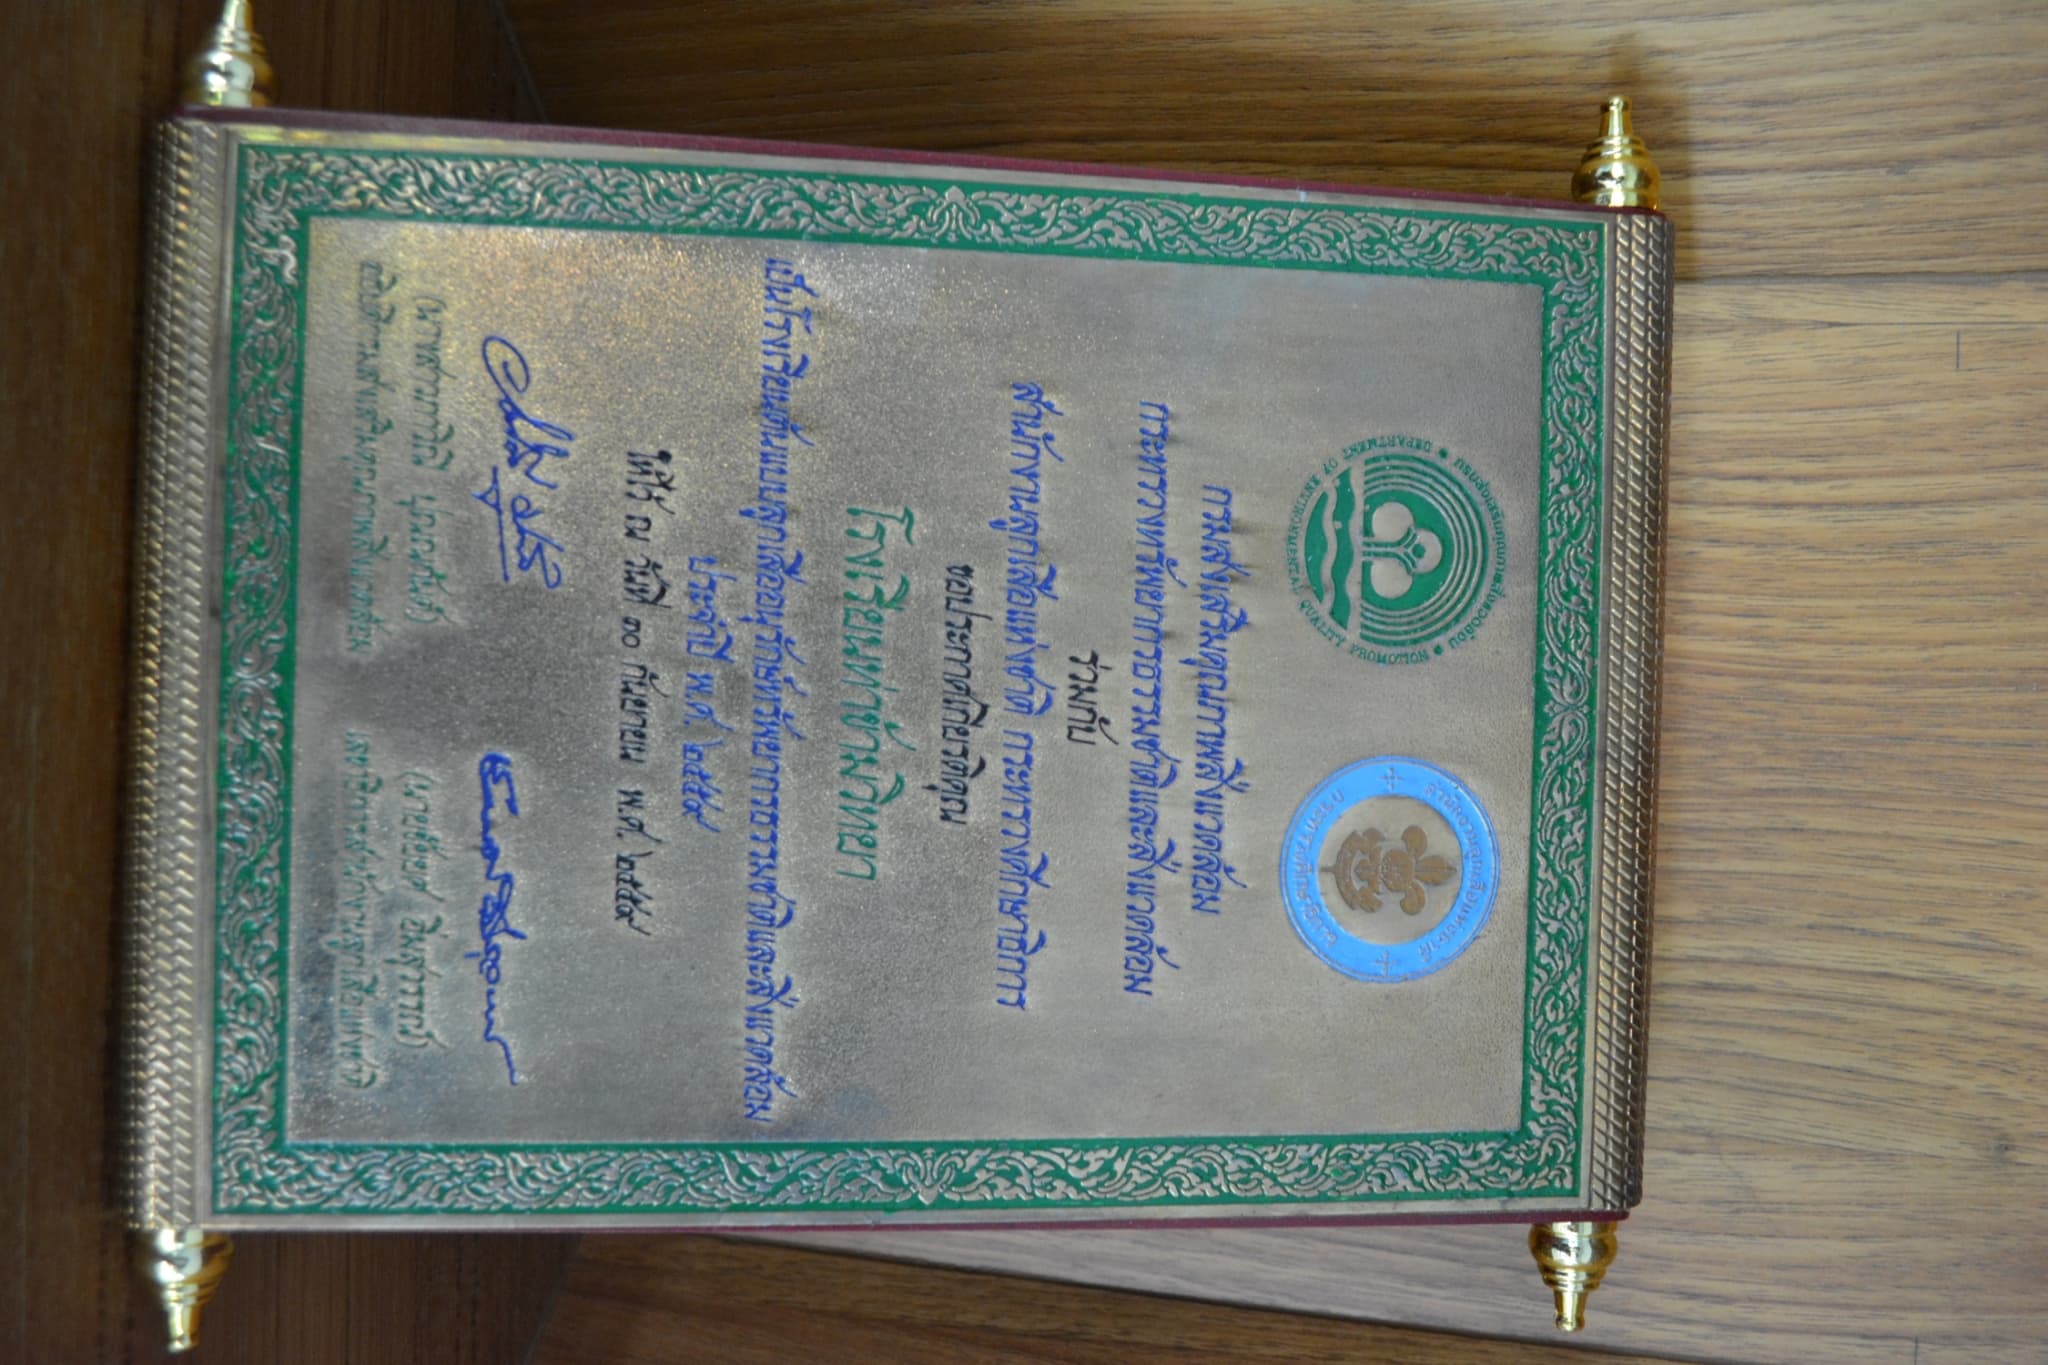 กรมส่งเสริมคุณภาพสิ่งแวดล้อม • DEPARTMENT OF ENVIRONMENTAL QUALITY PROMOTION •
สำนักงานลูกเสือแห่งชาติ
กระทรวงศึกษาธิการ
กรมส่งเสริมคุณภาพสิ่งแวดล้อม
กระทรวงทรัพยากรธรรมชาติและสิ่งแวดล้อม
ร่วมกับ
สำนักงานลูกเสือแห่งชาติ กระทรวงศึกษาธิการ
ขอประกาศเกียรติคุณ
โรงเรียนท่าข้ามวิทยา
เป็นโรงเรียนต้นแบบลูกเสืออนุรักษ์ทรัพยากรธรรมชาติและสิ่งแวดล้อม
ประจำปี พ.ศ. ๒๕๕๙
ให้ไว้ ณ วันที่ ๓๐ กันยายน พ.ศ. ๒๕๕๙
(นางสาวภาวิณี ปุณณกันต์)
อธิบดีกรมส่งเสริมคุณภาพสิ่งแวดล้อม
เลขาธิการสำนักงานลูกเสือแห่งชาติ